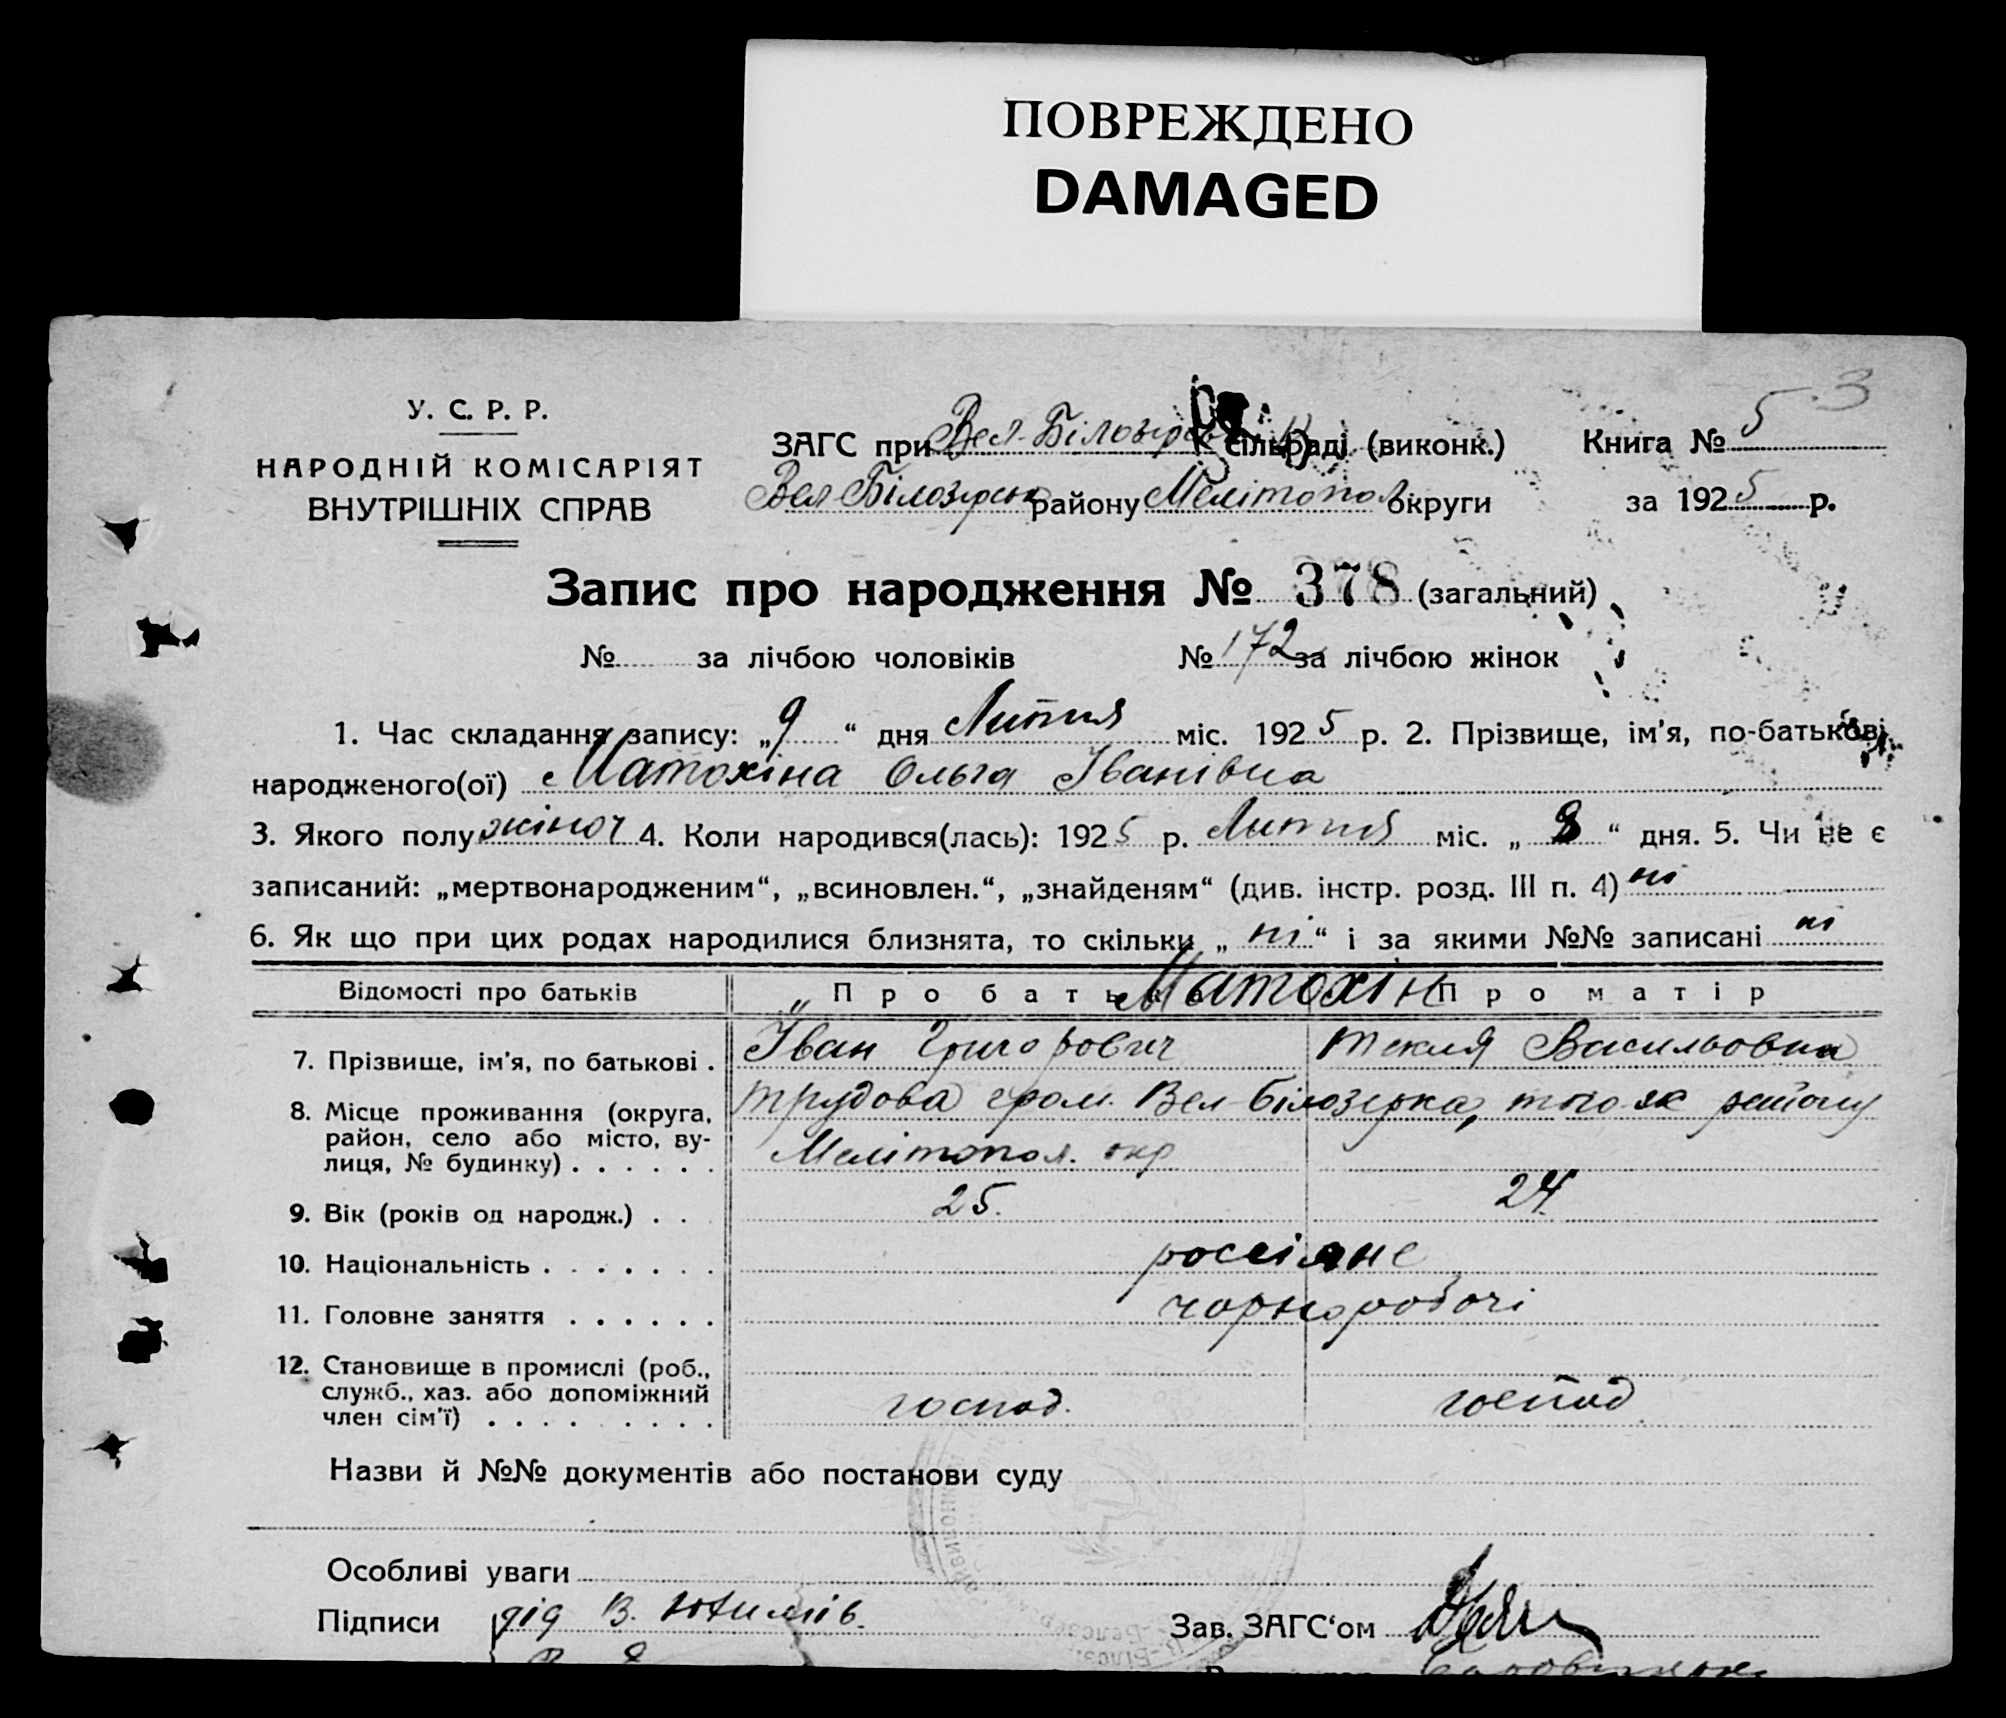 ПОВРЕЖДЕНО
DAMAGED
У. С. Р. Р.
НАРОДНІЙ КОМІСАРІЯТ
ВНУТРІШНІХ СПРАВ
ЗАГС при Вел-Білозірськ сільраді (виконк.)
Вел Білозірськ району Мелітопол. округи
Книга № 5 3
за 1925 р.
Запис про народження № 378 (загальний)
№ за лічбою чоловіків № 172 за лічбою жінок
1. Час складання запису: „9“ дня Липня міс. 1925 р. 2. Прізвище, ім'я, по-батькові
народженого(ої) Матохіна Ольга Іванівна
3. Якого полу жіноч 4. Коли народився(лась): 1925 р. Липня міс. „8“ дня. 5. Чи не є
записаний: „мертвонародженим“, „всиновлен.“, „знайденям“ (див. інстр. розд. III п. 4) ні
6. Як що при цих родах народилися близнята, то скільки „ні“ і за якими №№ записані ні
Відомості про батьків Про батька Матохін Про матір
7. Прізвище, ім'я, по батькові . Іван Григорович Текля Васильовна
8. Місце проживання (округа, трудова гром. Вел-Білозерка, того ж району
район, село або місто, ву-
лиця, № будинку) . . . . . . Мелітопол. окр
9. Вік (років од народж.) . . 25. 24
10. Національність . . . . . . . россіяне
11. Головне заняття . . . . . . чорноробочі
12. Становище в промислі (роб.,
служб., хаз. або допоміжний
член сім'ї) . . . . . . . . . господ. господ
Назви й №№ документів або постанови суду
Особливі уваги
Підписи дід В. Зав. ЗАГС'ом